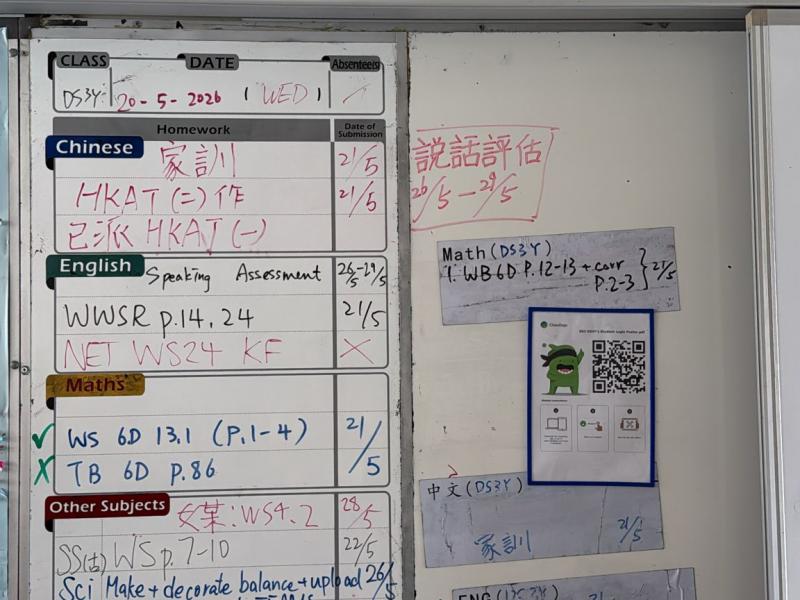 CLASS DATE Absentee(s)
DS3Y 20-5-2026 (WED) /
Homework Date of Submission
Chinese 家訓 21/5
HKAT (二) 作 21/5
已派 HKAT (一)
English Speaking Assessment 26/5-29/5
WWSR p.14, 24 21/5
NET WS24 KF X
Maths
✓ WS 6D 13.1 (P.1-4) 21/5
X TB 6D P.86
Other Subjects WS4.2 28/5
SS(古) WS p.7-10 22/5
Sci Make + decorate balance + upload 26/5
說話評估
26/5 - 29/5
Math (DS3Y)
1. WB 6D P.12-13 + corr } 21/5
P.2-3
ClassDojo
中文 (DS3Y)
家訓 21/5
ENG (DS3Y)